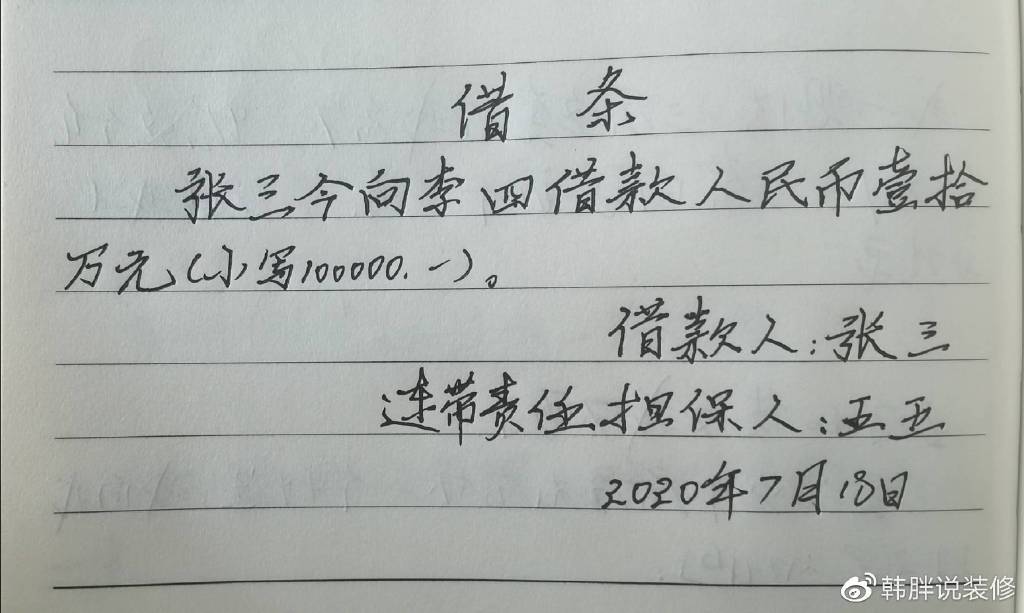 借条
张三今向李四借款人民币壹拾
万元(小写100000.-)。
借款人:张三
连带责任担保人:王五
2020年7月18日
韩胖说装修